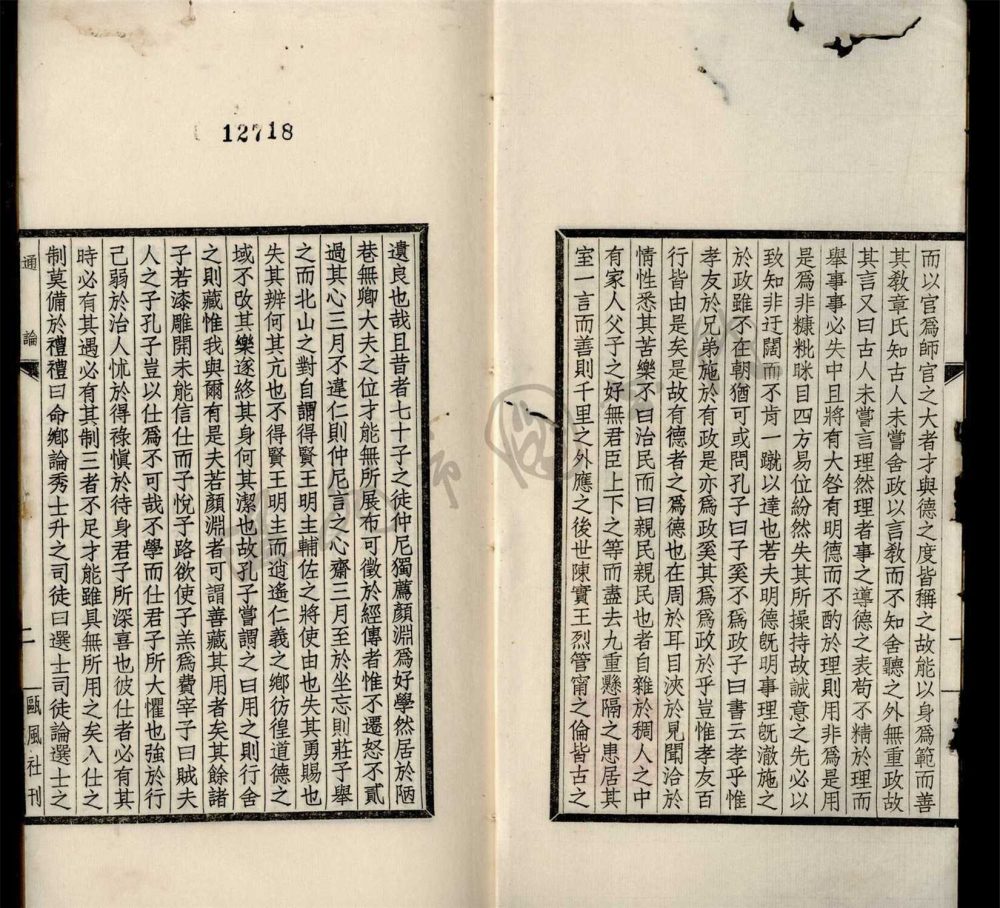 而以官爲師官之大者才與德之度皆稱之故能以身爲範而善
其敎章氏知古人未嘗舍政以言敎而不知舍聽之外無重政故
其言又曰古人未嘗言理然理者事之導德之表苟不精於理而
舉事事必失中且將有大咎有明德而不酌於理則用非爲是用
是爲非糠粃眯目四方易位紛然失其所操持故誠意之先必以
致知非迂闊而不肯一蹴以達也若夫明德旣明事理旣澈施之
於政雖不在朝猶可或問孔子曰子奚不爲政子曰書云孝乎惟
孝友於兄弟施於有政是亦爲政奚其爲爲政於乎豈惟孝友百
行皆由是矣是故有德者之爲德也在周於耳目浹於見聞洽於
情性悉其苦樂不曰治民而曰親民親民也者自雜於稠人之中
有家人父子之好無君臣上下之等而盡去九重懸隔之患居其
室一言而善則千里之外應之後世陳實王烈管甯之倫皆古之
遺良也哉且昔者七十子之徒仲尼獨薦顏淵爲好學然居於陋
巷無卿大夫之位才能無所展布可徵於經傳者惟不遷怒不貳
過其心三月不違仁則仲尼言之心齋三月至於坐忘則莊子舉
之而北山之對自謂得賢王明主輔佐之將使由也失其勇賜也
失其辨何其亢也不得賢王明主而逍遙仁義之鄉彷徨道德之
域不改其樂遂終其身何其潔也故孔子嘗謂之曰用之則行舍
之則藏惟我與爾有是夫若顏淵者可謂善藏其用者矣其餘諸
子若漆雕開未能信仕而子悅子路欲使子羔爲費宰子曰賊夫
人之子孔子豈以仕爲不可哉不學而仕君子所大懼也強於行
己弱於治人怵於得祿愼於待身君子所深喜也彼仕者必有其
時必有其遇必有其制三者不足才能雖具無所用之矣入仕之
制莫備於禮禮曰命鄉論秀士升之司徒曰選士司徒論選士之
通論
二
甌風社刊
12718